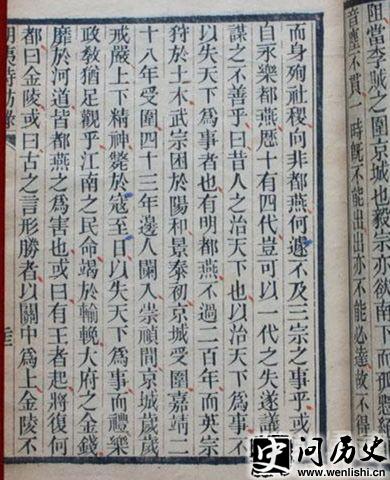 當李賊之圍京城也毅宗亦欲南下孤懸
音塵不貫一時既不能出出亦不能必達故不得
而身殉社稷向非都燕何遽不及三宗之事乎或
自永樂都燕歷十有四代豈可以一代之失遂議
謀之不善乎曰昔人之治天下也以治天下為事不
以失天下為事者也有明都燕不過二百年而英宗
狩於土木武宗困於陽和景泰初京城受圍嘉靖二
十八年受圍四十三年邊人闌入崇禎間京城歲歲
戒嚴上下精神斃於寇至日以失天下為事而禮樂
政教猶足觀乎江南之民命竭於輸輓大府之金錢
靡於河道皆都燕之為害也或曰有王者起將復何
都曰金陵或曰古之言形勝者以關中為上金陵不
明夷待訪錄
史问历史
www.wenlishi.cn